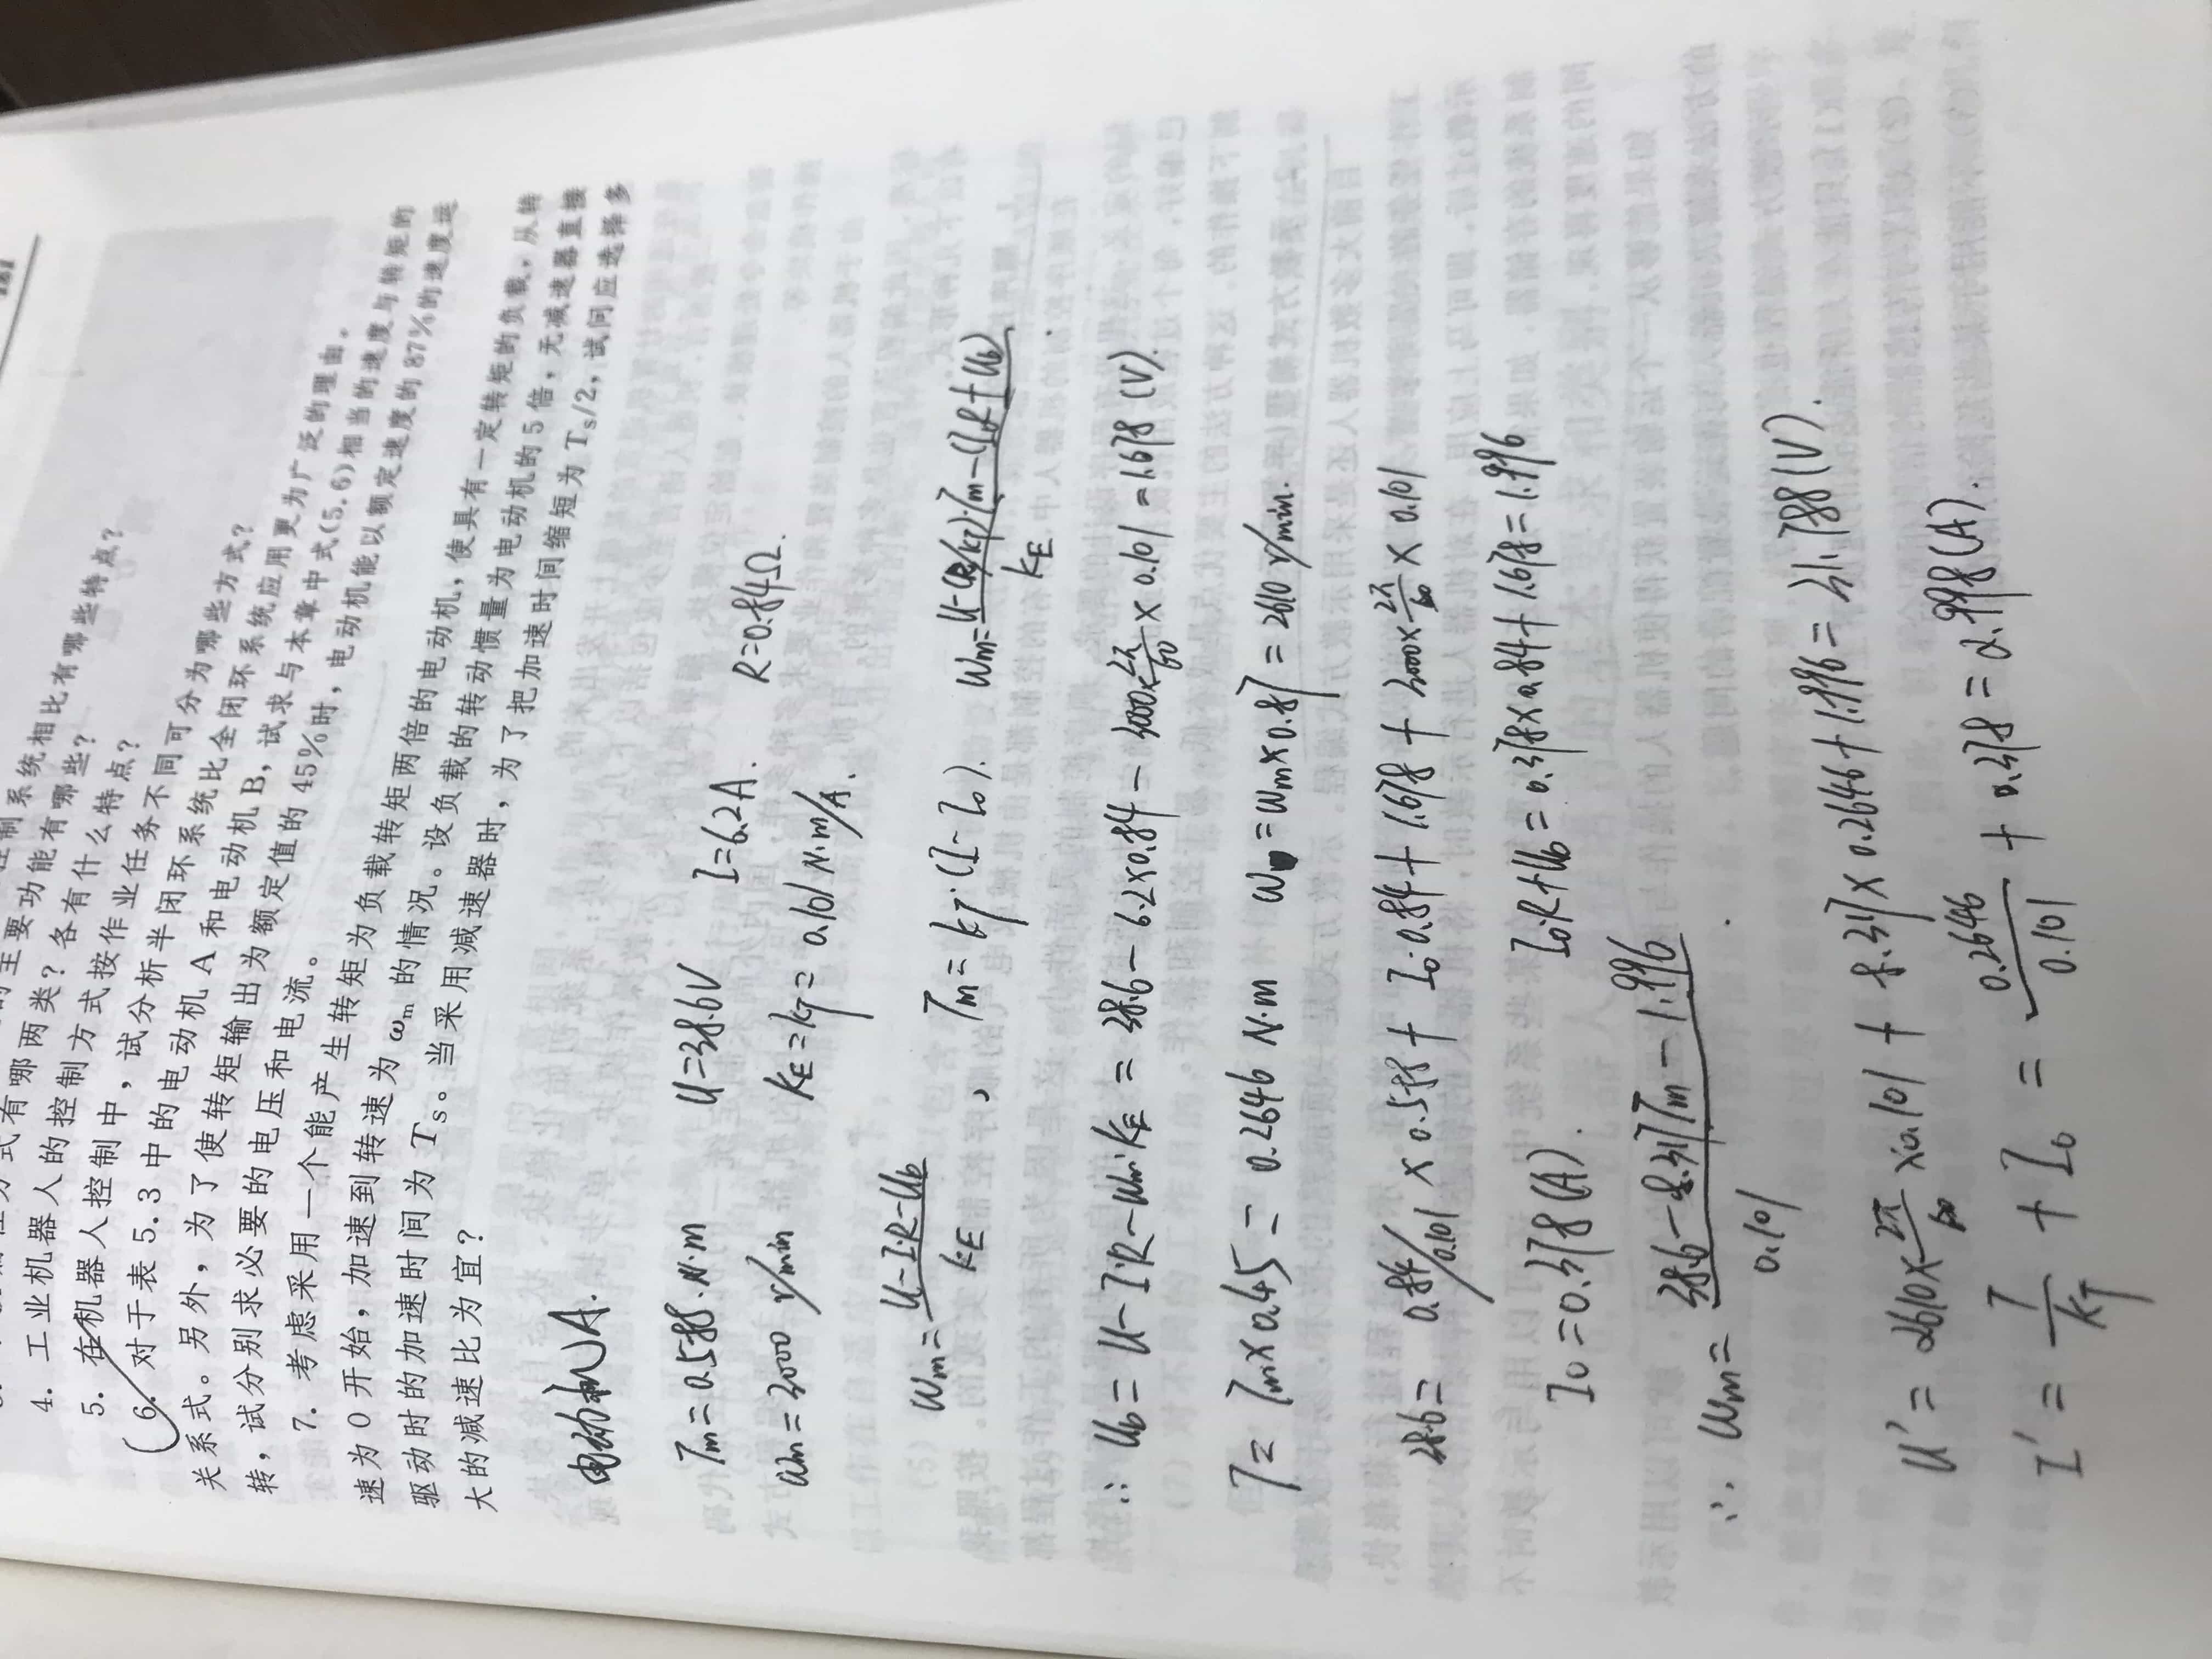 控制系统相比有哪些特点?
的主要功能有哪些?
式有哪两类?各有什么特点?
4. 工业机器人的控制方式按作业任务不同可分为哪些方式?
5. 在机器人控制中,试分析半闭环系统比全闭环系统应用更为广泛的理由。
6. 对于表 5.3 中的电动机 A 和电动机 B,试求与本章中式(5.6)相当的速度与转矩的
关系式。另外,为了使转矩输出为额定值的 45%时,电动机能以额定速度的 87%的速度运
转,试分别求必要的电压和电流。
7. 考虑采用一个能产生转矩为负载转矩两倍的电动机,使具有一定转矩的负载,从转
速为 0 开始,加速到转速为 ωm 的情况。设负载的转动惯量为电动机的 5 倍,无减速器直接
驱动时的加速时间为 Ts。当采用减速器时,为了把加速时间缩短为 Ts/2,试问应选择多
大的减速比为宜?
电动机A.
Tm=0.588.N·m U=38.6V I=6.2A. R=0.84Ω.
ωm=3000 r/min kE=kT=0.101 N·m/A.
ωm=(U-IR-Ub)/kE , Tm=kT·(I-I0). ωm=(U-(R/kT)·Tm-(I0R+Ub))/kE
∴ Ub=U-IR-ωm·kE=38.6-6.2×0.84-3000×2π/60×0.101=1.678(V).
T=Tm×0.45=0.2646 N·m ω=ωm×0.87=2610 r/min.
38.6=0.84/0.101×0.588+I0·0.84+1.678+3000×2π/60×0.101
I0=0.378(A). I0·R+Ub=0.378×0.84+1.678=1.996
∴ ωm=(38.6-8.317Tm-1.996)/0.101 .
U'=2610×2π/60×0.101+8.317×0.2646+1.996=31.788(V).
I'=T/kT+I0=0.2646/0.101+0.378=2.998(A).